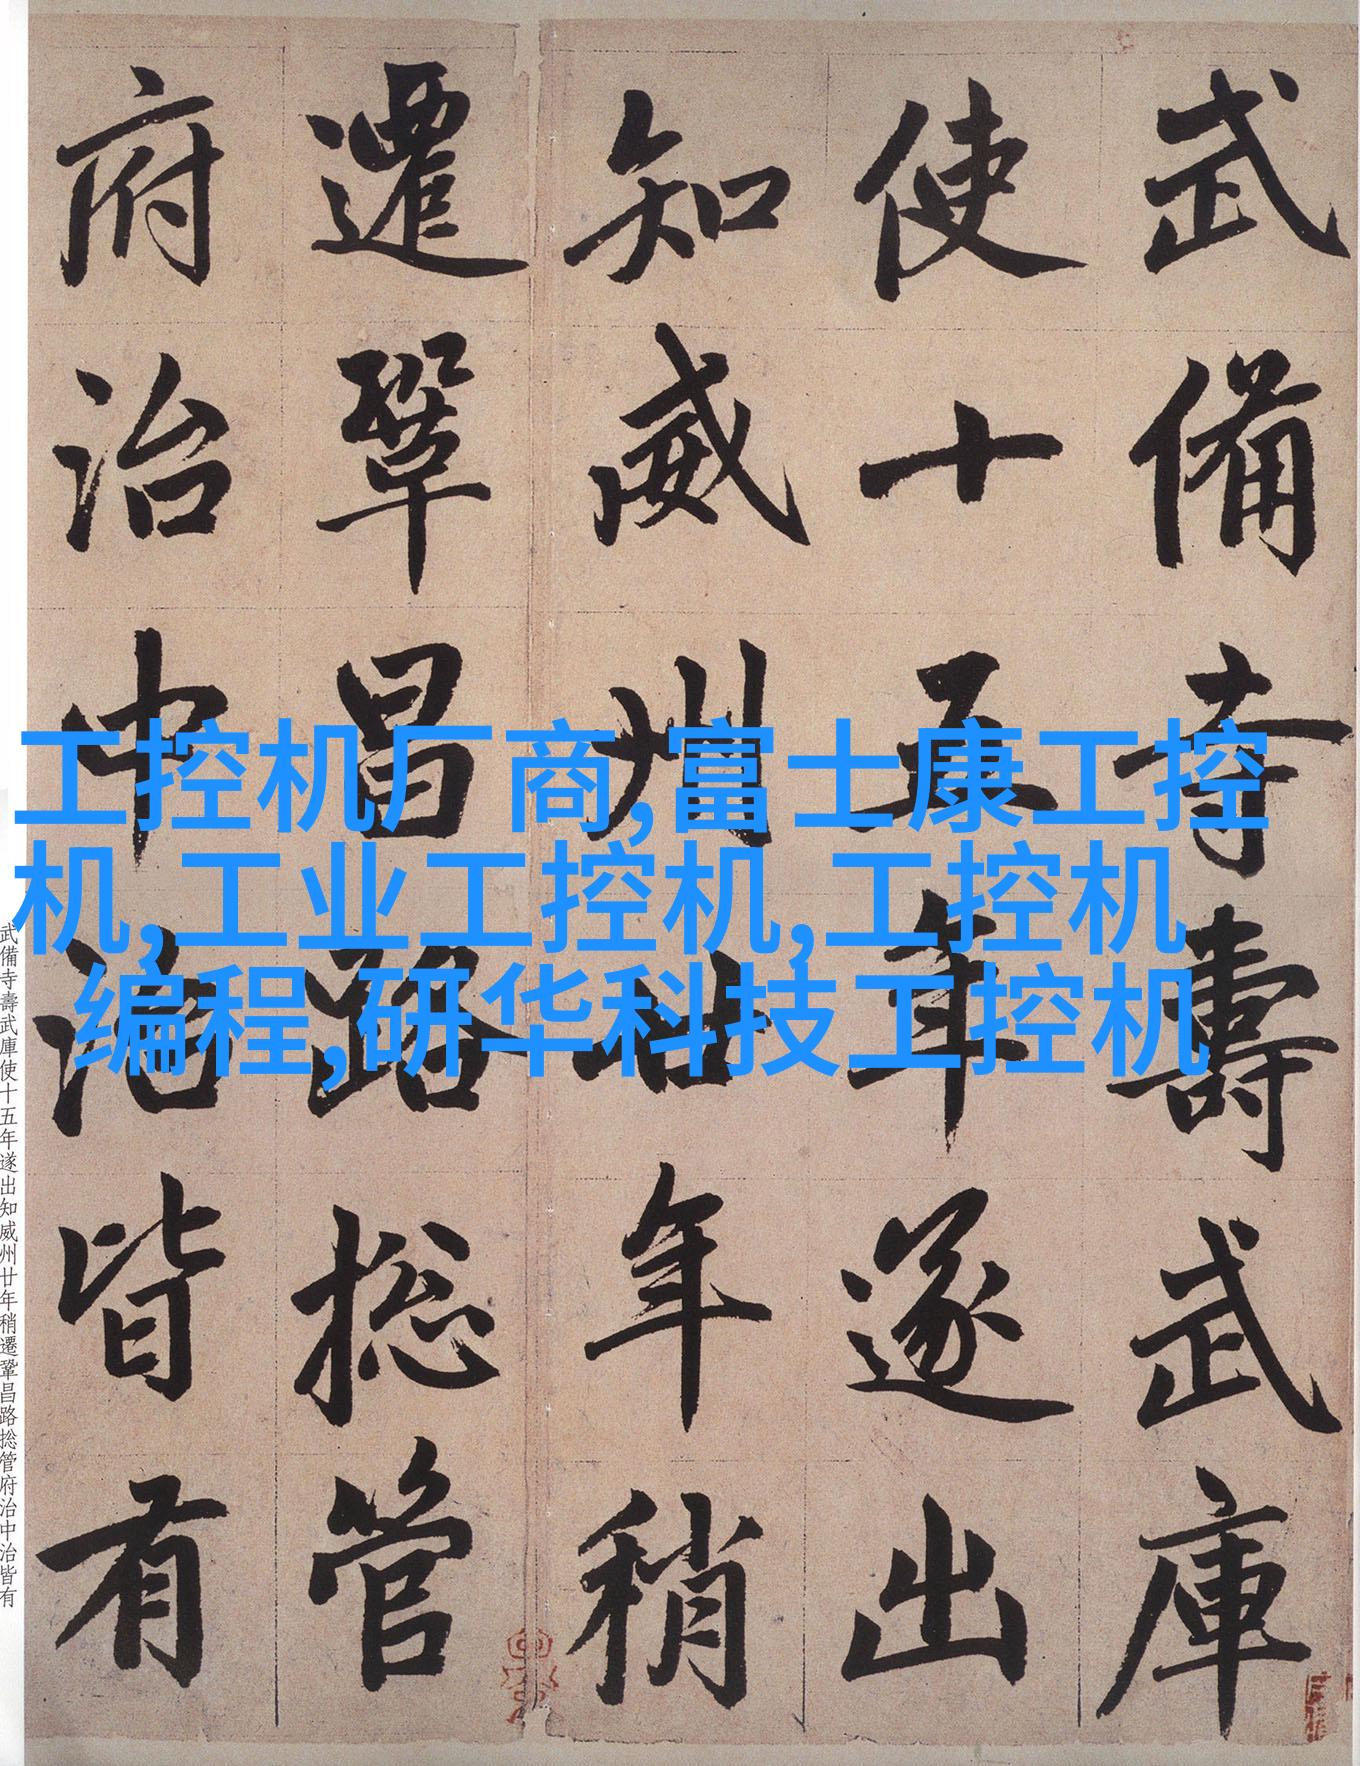 武備寺壽武庫
使十五年遂出
知威州廿年稍
遷鞏昌路捴管
府治中治皆有
工控机厂商,富士康工控
机,工业工控机,工控机
编程,研华科技工控机
武備寺壽武庫使十五年遂出知威州廿年稍遷鞏昌路捴管府治中治皆有